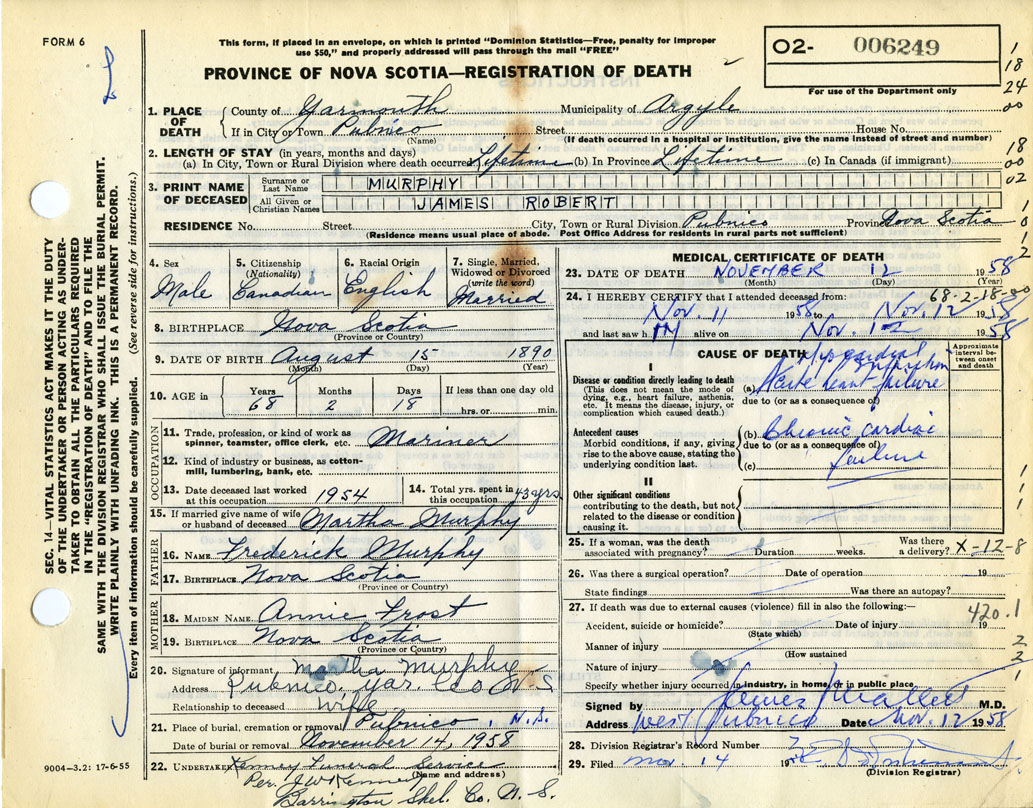 FORM 6
This form, if placed in an envelope, on which is printed "Dominion Statistics—Free, penalty for improper
use $50," and properly addressed will pass through the mail "FREE"
PROVINCE OF NOVA SCOTIA—REGISTRATION OF DEATH
02- 006249
For use of the Department only
1
18
24
00
18
00
02
1
0
1
2
1. PLACE OF DEATH
County of Yarmouth Municipality of Argyle
If in City or Town Pubnico Street House No.
(Name) (If death occurred in a hospital or institution, give the name instead of street and number)
2. LENGTH OF STAY (in years, months and days)
(a) In City, Town or Rural Division where death occurred Lifetime (b) In Province Lifetime (c) In Canada (if immigrant)
3. PRINT NAME OF DECEASED
Surname or Last Name MURPHY
All Given or Christian Names JAMES ROBERT
RESIDENCE No. Street City, Town or Rural Division Pubnico Province Nova Scotia
(Residence means usual place of abode. Post Office Address for residents in rural parts not sufficient)
4. Sex
Male
5. Citizenship
(Nationality)
Canadian
6. Racial Origin
English
7. Single, Married,
Widowed or Divorced
(write the word)
Married
8. BIRTHPLACE Nova Scotia
(Province or Country)
9. DATE OF BIRTH August 15 1890
(Month) (Day) (Year)
10. AGE in
Years Months Days If less than one day old
68 2 18 hrs. or min.
OCCUPATION
11. Trade, profession, or kind of work as
spinner, teamster, office clerk, etc. Mariner
12. Kind of industry or business, as cotton-
mill, lumbering, bank, etc.
13. Date deceased last worked
at this occupation 1954
14. Total yrs. spent in
this occupation 43 yrs
15. If married give name of wife
or husband of deceased Martha Murphy
FATHER
16. NAME Frederick Murphy
17. BIRTHPLACE Nova Scotia
(Province or Country)
MOTHER
18. MAIDEN NAME Annie Frost
19. BIRTHPLACE Nova Scotia
(Province or Country)
20. Signature of informant Martha Murphy
Address Pubnico, Yar. Co N S
Relationship to deceased Wife
21. Place of burial, cremation or removal Pubnico, N.S.
Date of burial or removal November 14, 1958
22. Undertaker Kenney Funeral Service
(Name and address)
Per. J W Kenney
Barrington Shel. Co. N. S.
MEDICAL CERTIFICATE OF DEATH
23. DATE OF DEATH NOVEMBER 12 1958
(Month) (Day) (Year)
68-2-18-00
24. I HEREBY CERTIFY that I attended deceased from:
Nov. 11 1958 to Nov. 12 1958
and last saw h im alive on Nov. 1958
CAUSE OF DEATH
Approximate
interval be-
tween onset
and death
I
Disease or condition directly leading to death
(This does not mean the mode of
dying, e.g., heart failure, asthenia,
etc. It means the disease, injury, or
complication which caused death.)
Myocardial
(a) Acute heart failure
due to (or as a consequence of)
Antecedent causes
Morbid conditions, if any, giving
rise to the above cause, stating the
underlying condition last.
(b) Chronic cardiac
due to (or as a consequence of)
(c) failure
II
Other significant conditions
contributing to the death, but not
related to the disease or condition
causing it.
25. If a woman, was the death
associated with pregnancy? Duration weeks. Was there
a delivery? X-12-8
26. Was there a surgical operation? Date of operation 19
State findings Was there an autopsy?
27. If death was due to external causes (violence) fill in also the following:—
420.1
Accident, suicide or homicide? Date of injury 19
(State which)
Manner of injury
(How sustained
Nature of injury
Specify whether injury occurred in industry, in home, or in public place.
Signed by M.D.
Address West Pubnico Date Nov. 12 1958
28. Division Registrar's Record Number
29. Filed Nov. 14 19
(Division Registrar)
1
1
1
2
2
1
SEC. 14—VITAL STATISTICS ACT MAKES IT THE DUTY
OF THE UNDERTAKER OR PERSON ACTING AS UNDER-
TAKER TO OBTAIN ALL THE PARTICULARS REQUIRED
IN THE "REGISTRATION OF DEATH" AND TO FILE THE
SAME WITH THE DIVISION REGISTRAR WHO SHALL ISSUE THE BURIAL PERMIT.
WRITE PLAINLY WITH UNFADING INK. THIS IS A PERMANENT RECORD.
Every item of information should be carefully supplied. (See reverse side for instructions.)
9004—3.2: 17-6-55